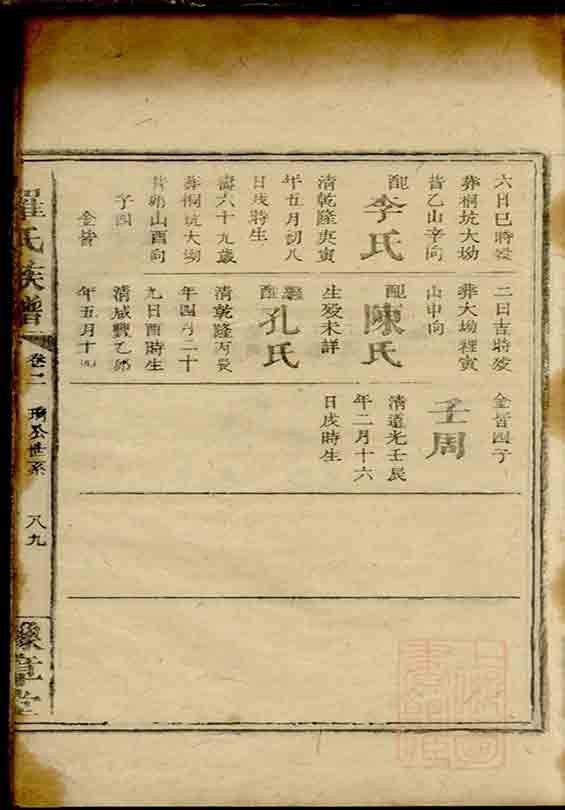 六日巳時歿
葬桐坑大坳
皆乙山辛向
配
李氏
清乾隆庚寅
年五月初八
日戌時生
壽六十九歲
葬桐坑大坳
卯山酉向
子四
金皆
二日吉時歿
葬大坳裡寅
山申向
配
陳氏
生歿未詳
繼
配
孔氏
清乾隆丙辰
年四月二十
九日酉時生
清咸豐乙卯
年五月十四
金皆四子
壬周
清道光壬辰
年二月十六
日戌時生
羅氏族譜
卷二
公世系
八九
豫章堂